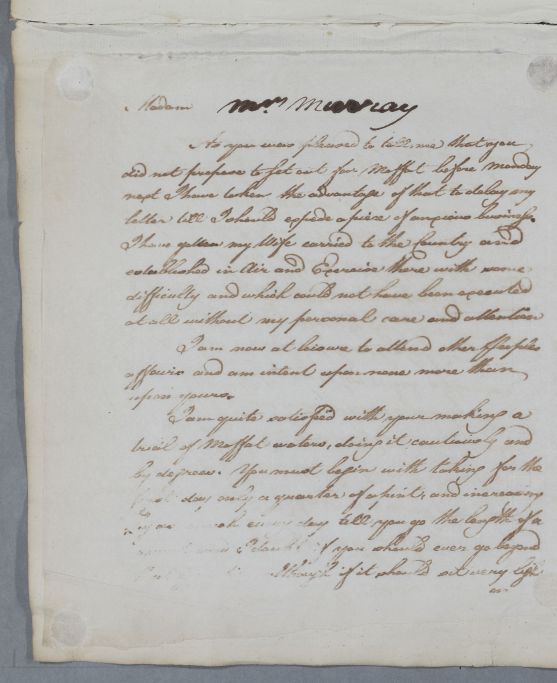 Madam Mrs Murray
As you was pleased to tell me that you
did not propose to set out for Moffat before monday
next I have taken the advantage of that to delay my
letter till I should expede a piece of anxious business.
I have gotten my Wife carried to the Country and
established in Air and Exercise there with some
difficulty and which could not have been executed
at all without my personal care and attention
I am now at leisure to attend other Peoples
affairs and am intent upon none more than
upon yours.
I am quite satisfied with your making a
trial of Moffat waters, doing it cautiously and
by degrees. You must begin with taking for the
first day only a quarter of a pint, and increasing
every day till you go the length of a
and I doubt if you should ever go beyond
if it should sit very light
on